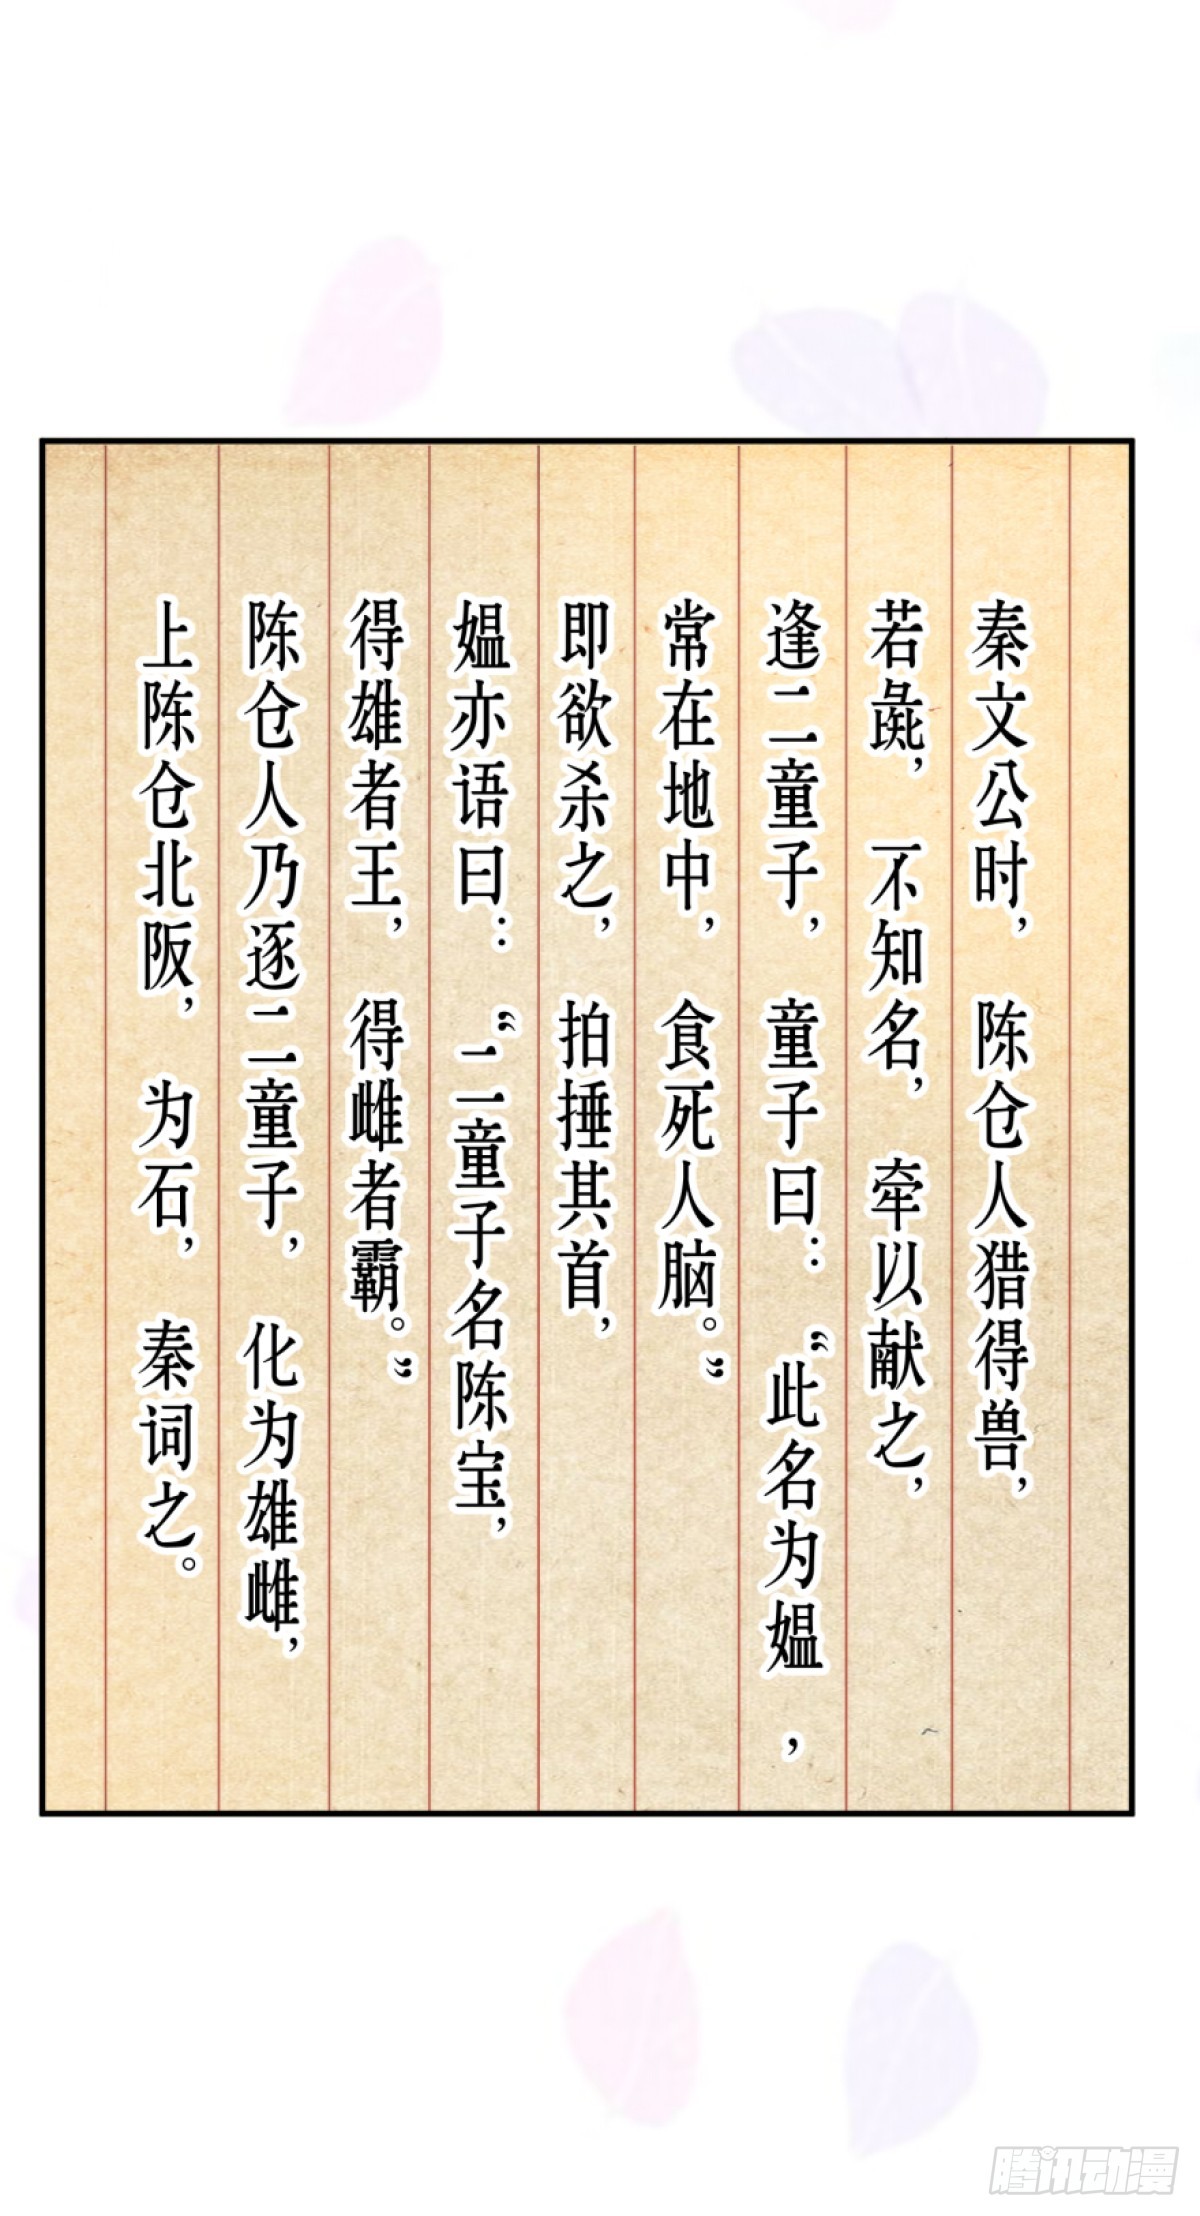 秦文公时，陈仓人猎得兽，
若彘，不知名，牵以献之，
逢二童子，童子曰：“此名为媪，
常在地中，食死人脑。”
即欲杀之，拍捶其首，
媪亦语曰：“二童子名陈宝，
得雄者王，得雌者霸。”
陈仓人乃逐二童子，化为雄雌，
上陈仓北阪，为石，秦词之。
腾讯动漫